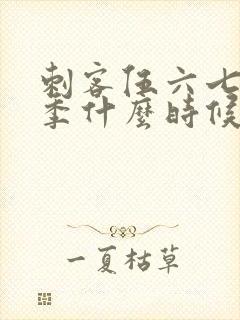 刺客伍六七
季什麼時候
一夏枯草